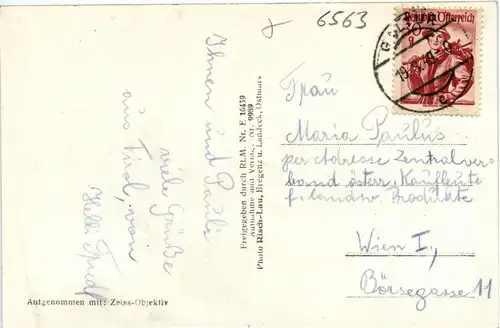 6563
Ihnen und Pauli
viele Grüße
aus Tirol, von
Helli
Freigegeben durch RLM. Nr. F 16439
Aufnahme und Verlag, Nr. 9989
Photo Risch-Lau, Bregenz u. Landeck, Ostmark
Aufgenommen mit: Zeiss-Objektiv
Republik Österreich
Frau
Maria Paulus
per Adresse Zentralver
band österr. Kaufleute
f. landw. Produkte
Wien I.,
Börsegasse 11